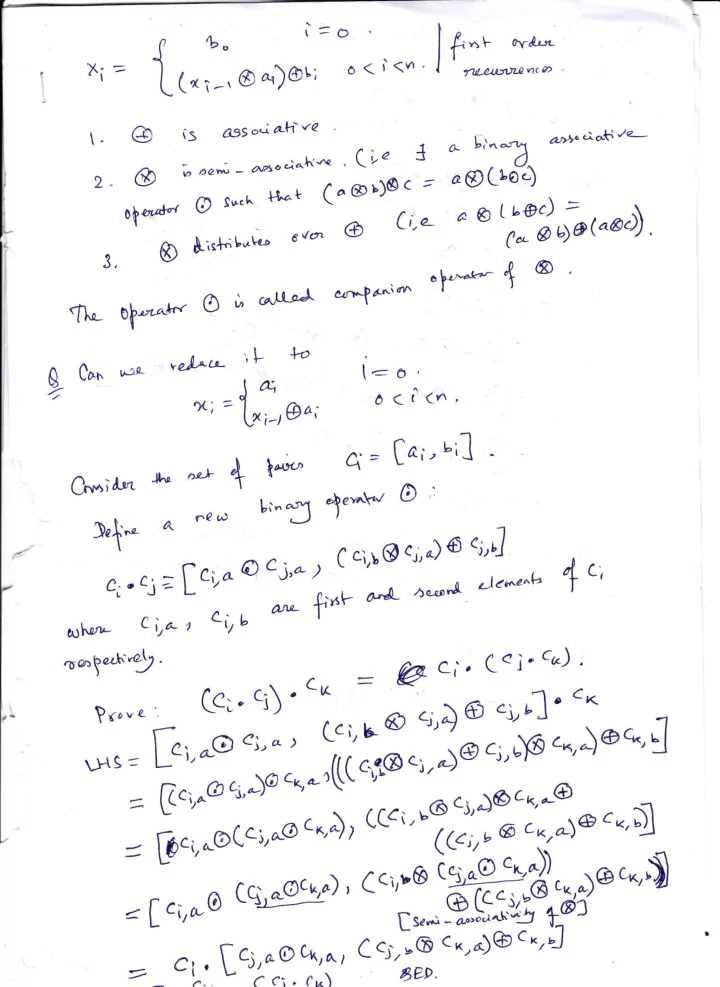 x_i = { b_0 i = 0 .
(x_{i-1} ⊗ a_i) ⊕ b_i 0 < i < n . | first order recurrences .
1. ⊕ is associative .
2. ⊗ is semi-associative. (i.e ∃ a binary associative
operator ⊙ such that (a ⊗ b) ⊗ c = a ⊗ (b ⊙ c)
3. ⊗ distributes over ⊕ (i.e a ⊗ (b ⊕ c) =
(a ⊗ b) ⊕ (a ⊗ c)).
The operator ⊙ is called companion operator of ⊗ .
Q Can we reduce it to
x_i = { a_i i = 0 .
x_{i-1} ⊕ a_i 0 < i < n .
Consider the set of pairs C_i = [a_i, b_i] .
Define a new binary operator ⊙ :
C_i • C_j ≡ [C_{i,a} ⊙ C_{j,a} , (C_{i,b} ⊗ C_{j,a}) ⊕ C_{j,b}]
where C_{i,a} , C_{i,b} are first and second elements of C_i
respectively.
Prove : (C_i • C_j) • C_k = C_i • (C_j • C_k) .
LHS = [C_{i,a} ⊙ C_{j,a} , (C_{i,b} ⊗ C_{j,a}) ⊕ C_{j,b}] • C_k
= [(C_{i,a} ⊙ C_{j,a}) ⊙ C_{k,a} , (((C_{i,b} ⊗ C_{j,a}) ⊕ C_{j,b}) ⊗ C_{k,a}) ⊕ C_{k,b}]
= [C_{i,a} ⊙ (C_{j,a} ⊙ C_{k,a}), ((C_{i,b} ⊗ C_{j,a}) ⊗ C_{k,a} ⊕
((C_{j,b} ⊗ C_{k,a}) ⊕ C_{k,b})]
= [C_{i,a} ⊙ (C_{j,a} ⊙ C_{k,a}), (C_{i,b} ⊗ (C_{j,a} ⊙ C_{k,a}))
⊕ ((C_{j,b} ⊗ C_{k,a}) ⊕ C_{k,b})]
[semi-associativity of ⊗]
= C_i • [C_{j,a} ⊙ C_{k,a}, (C_{j,b} ⊗ C_{k,a}) ⊕ C_{k,b}]
(C_j • C_k) QED.